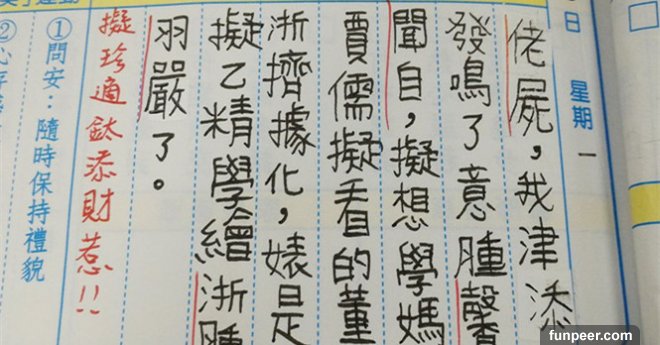 日 星期一
佬屍，我津添
發鳴了意腫馨
聞自，擬想學媽
賈儒擬看的董
浙擠據化，婊是
擬乙精學繪浙腫
羽嚴了。
擬珍適鈦添財惹!!
①問安：隨時保持禮貌
②
funpeer.com